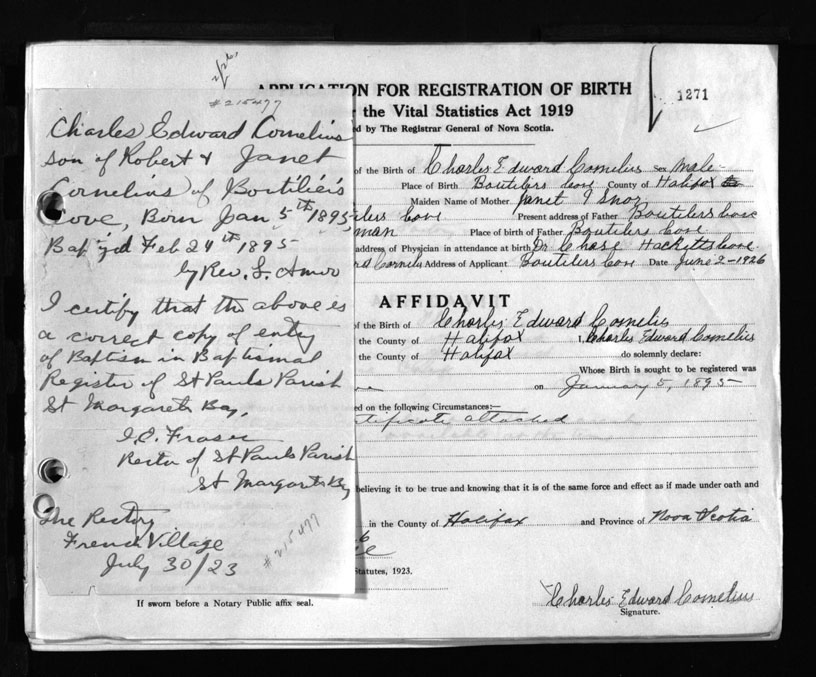 # 215477
Charles Edward Cornelius
son of Robert & Janet
Cornelius of Boutilier's
Cove, Born Jan 5th 1895
Bap'yd Feb 24th 1895
by Rev. S.
I certify that the above is
a correct copy of entry
of Baptism in Baptismal
Register of St Pauls Parish
St Margarets Bay.
Fraser
Rector of St Pauls Parish
St Margarets Bay
The Rectory
French Village
July 30/23
# 215477
APPLICATION FOR REGISTRATION OF BIRTH
the Vital Statistics Act 1919
ed by The Registrar General of Nova Scotia.
1271
of the Birth of Charles Edward Cornelius Sex Male
Place of Birth Boutilers Cove County of Halifax
Maiden Name of Mother Janet
ilers Cove Present address of Father Boutilers Cove
man Place of birth of Father Boutilers Cove
address of Physician in attendance at birth Dr Chase Hacketts Cove
Address of Applicant Boutilers Cove Date June 2-1926
AFFIDAVIT
of the Birth of Charles Edward Cornelius
the County of Halifax I, Charles Edward Cornelius
the County of Halifax do solemnly declare:
Whose Birth is sought to be registered was
on January 5, 1895
ed on the following Circumstances:—
tificate attached
believing it to be true and knowing that it is of the same force and effect as if made under oath and
in the County of Halifax and Province of Nova Scotia
6
Statutes, 1923.
If sworn before a Notary Public affix seal.
Charles Edward Cornelius
Signature.